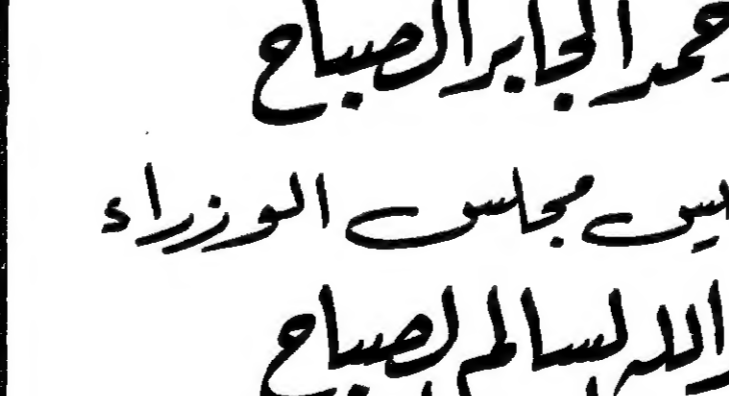 حمد الجابر الصباح
يس مجلس الوزراء
الله السالم الصباح